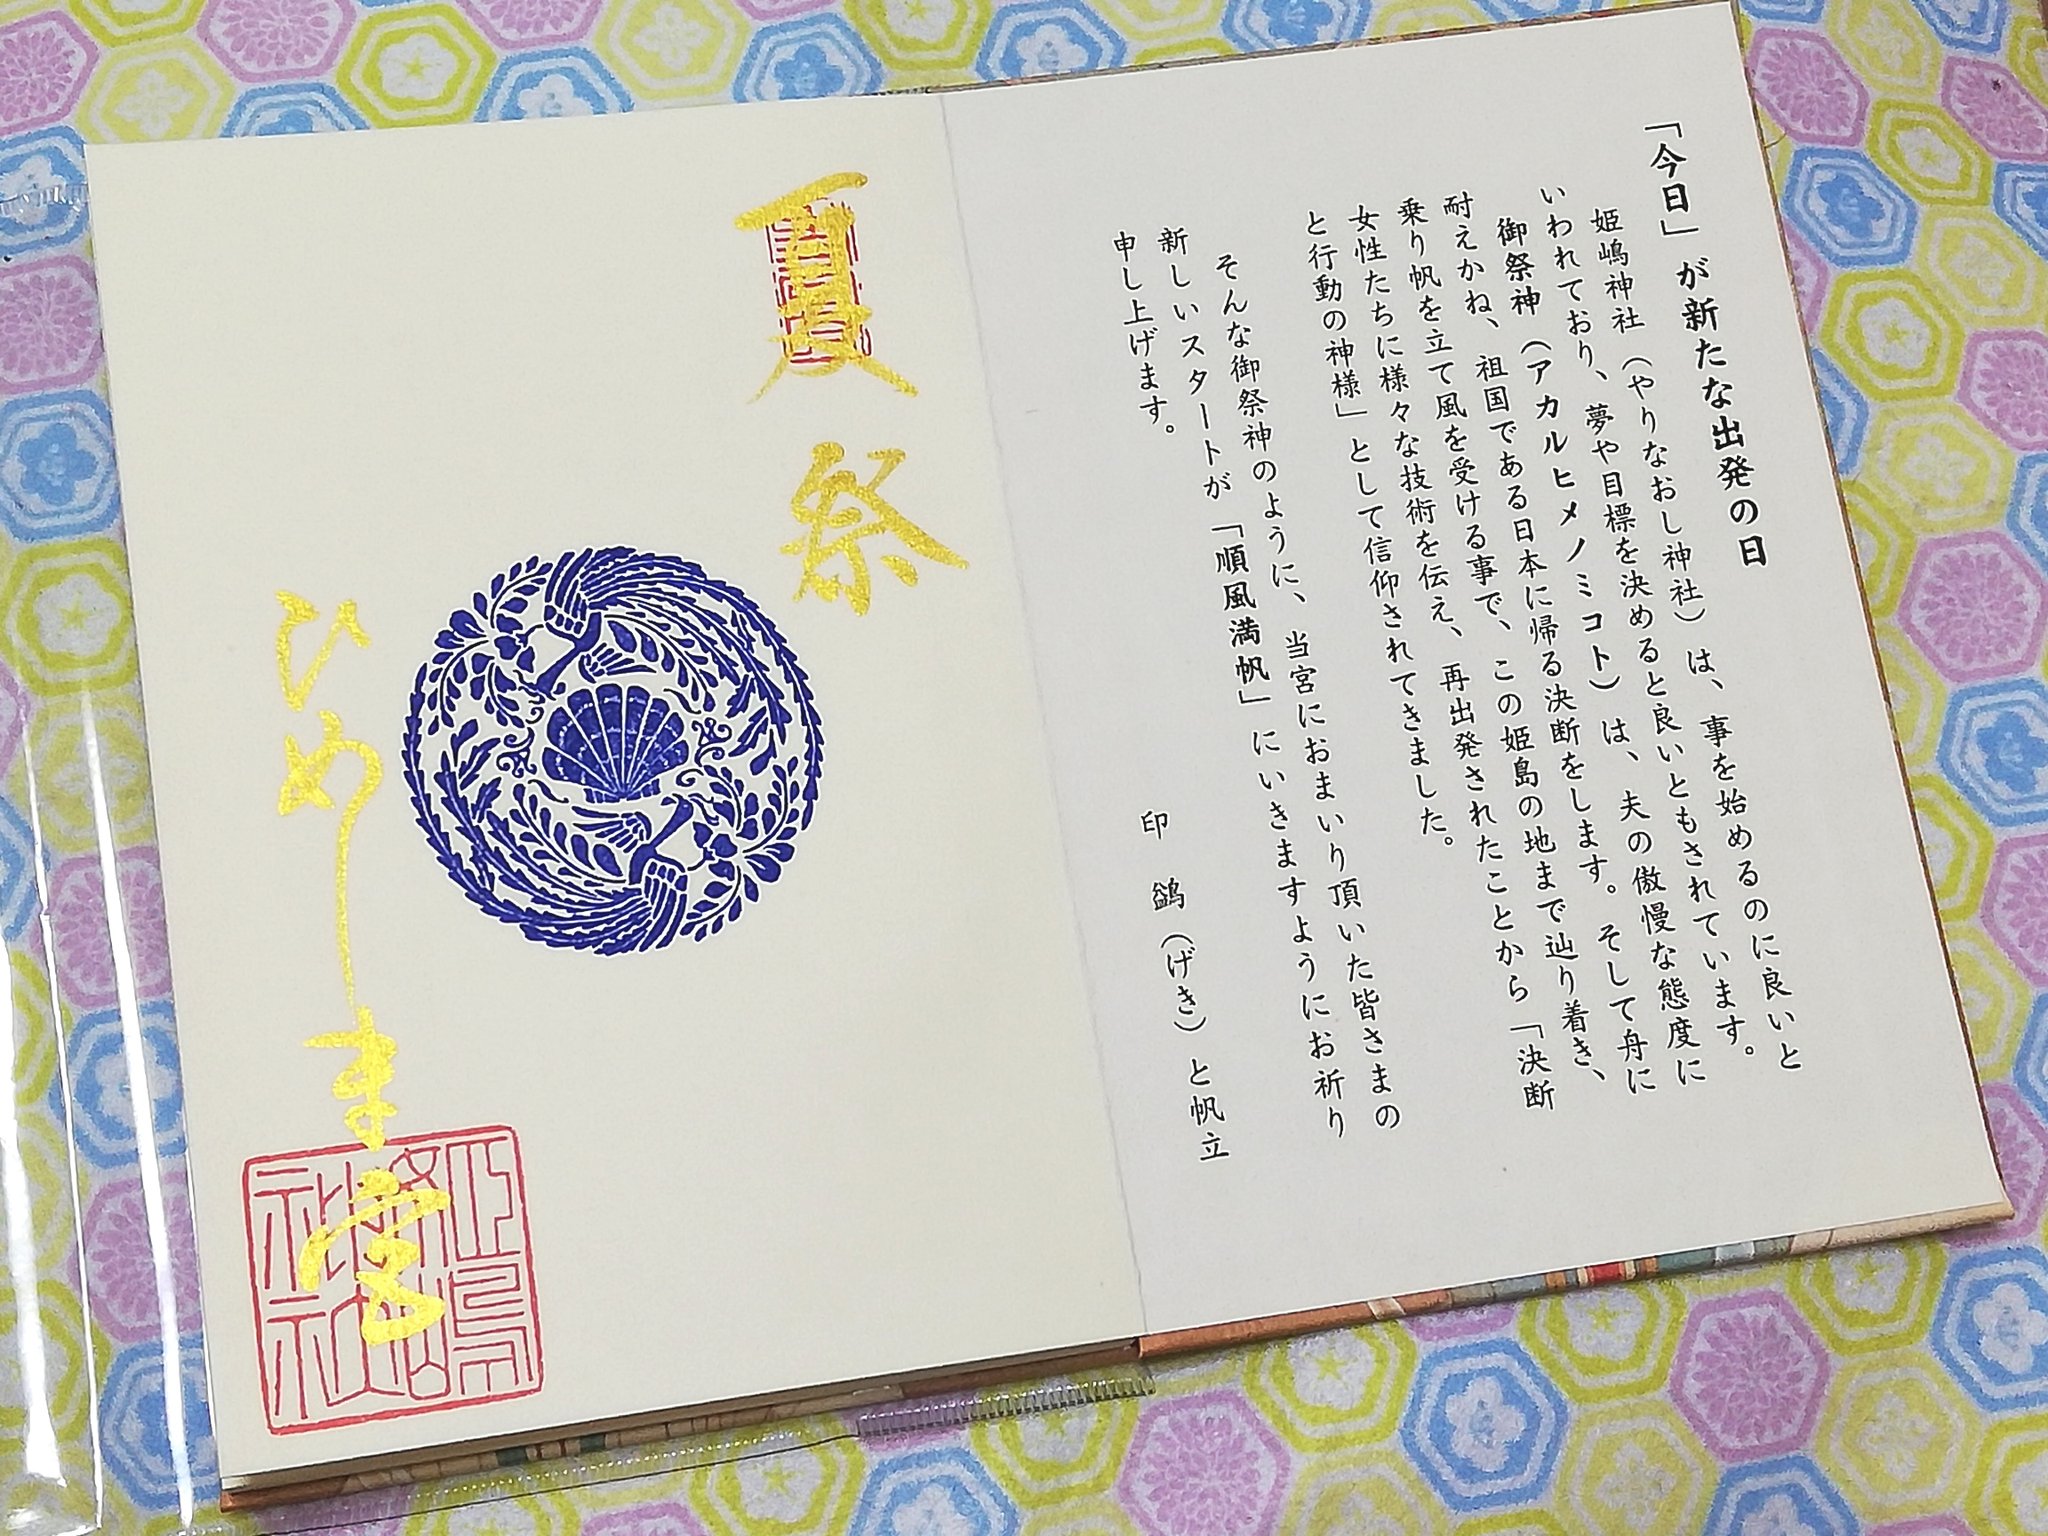 「今日」が新たな出発の日
姫嶋神社（やりなおし神社）は、事を始めるのに良いと
いわれており、夢や目標を決めると良いともされています。
御祭神（アカルヒメノミコト）は、夫の傲慢な態度に
耐えかね、祖国である日本に帰る決断をします。そして舟に
乗り帆を立て風を受ける事で、この姫島の地まで辿り着き、
女性たちに様々な技術を伝え、再出発されたことから「決断
と行動の神様」として信仰されてきました。
そんな御祭神のように、当宮におまいり頂いた皆さまの
新しいスタートが「順風満帆」にいきますようにお祈り
申し上げます。
印 鷁（げき）と帆立
夏祭
ひめしま宮
姫嶋神社